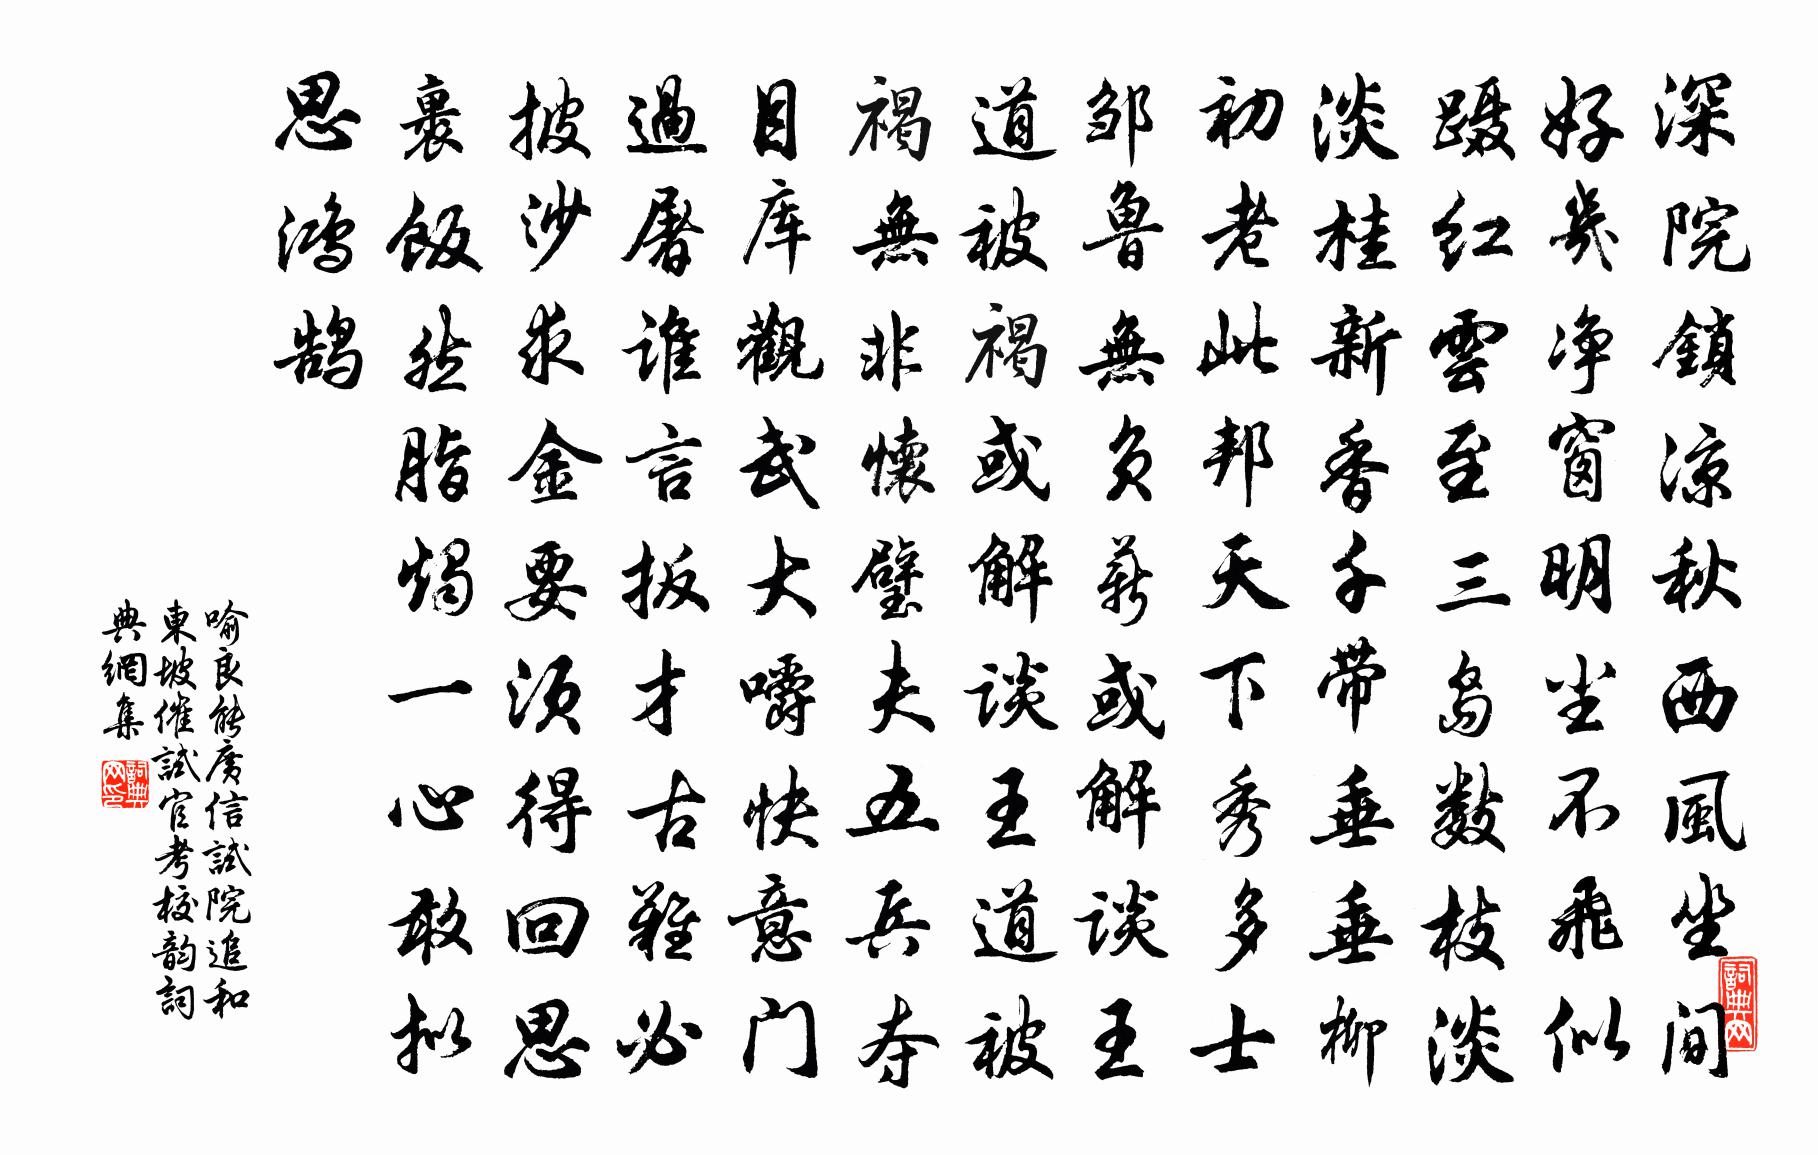 深院鎖凉秋西風坐间
好幾净窗明坐不飛似
蹑红雲至三島数枝淡
淡桂新香千带垂垂柳
初老此邦天下秀多士
邹魯無负薪或解谈王
道被褐或解谈王道被
褐無非懷璧夫五兵夺
目库觀武大嚼快意门
過屠谁言扳才古難必
披沙求金要须得回思
裹飯然脂燭一心敢拟
思鸿鹄
喻良能廣信試院追和
東坡催試官考校韵詞
典網集
詞典网
詞典网